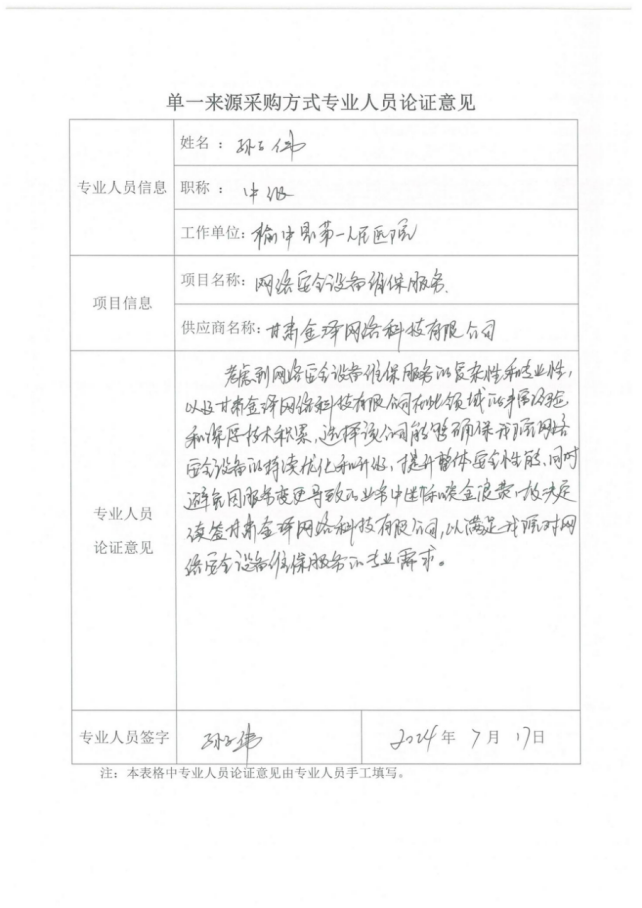 单一来源采购方式专业人员论证意见
专业人员信息
姓名：孙子伟
职称：中级
工作单位：榆中县第一人民医院
项目信息
项目名称：网络安全设备维保服务
供应商名称：甘肃金泽网络科技有限公司
专业人员
论证意见
考虑到网络安全设备维保服务的复杂性和专业性，
以及甘肃金泽网络科技有限公司在此领域的丰富经验
和深厚技术积累，选择该公司能够确保我院网络
安全设备的持续优化和升级，提升整体安全性能，同时
避免因服务变更导致的业务中断和资金浪费，故决定
续签甘肃金泽网络科技有限公司，以满足我院对网
络安全设备维保服务的专业需求。
专业人员签字
孙子伟
2024年7月17日
注：本表格中专业人员论证意见由专业人员手工填写。